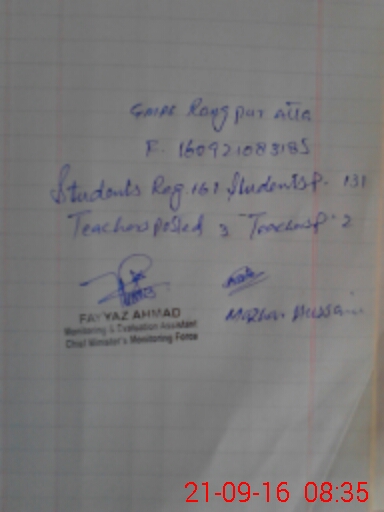 GMPS Rangpur Atta
F. 160921083185
Students Reg. 161 Students P. 131
Teachers posted 3 Teachers P. 2
FAYYAZ AHMAD
Monitoring & Evaluation Assistant
Chief Minister's Monitoring Force
Mazhar Hussain
21-09-16 08:35